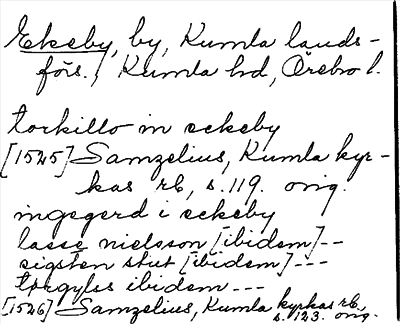 Ekeby, by, Kumla lands-
förs., Kumla hd, Örebro l.
torkillo in ekeby
[1525] Samzelius, Kumla kyr-
kas rb, s. 119. orig.
ingegerd i ekeby
lasse nielsson [ibidem] --
sigsten stut [ibidem] ---
torgylss ibidem ---
[1526] Samzelius, Kumla kyrkas rb,
s. 123. orig.